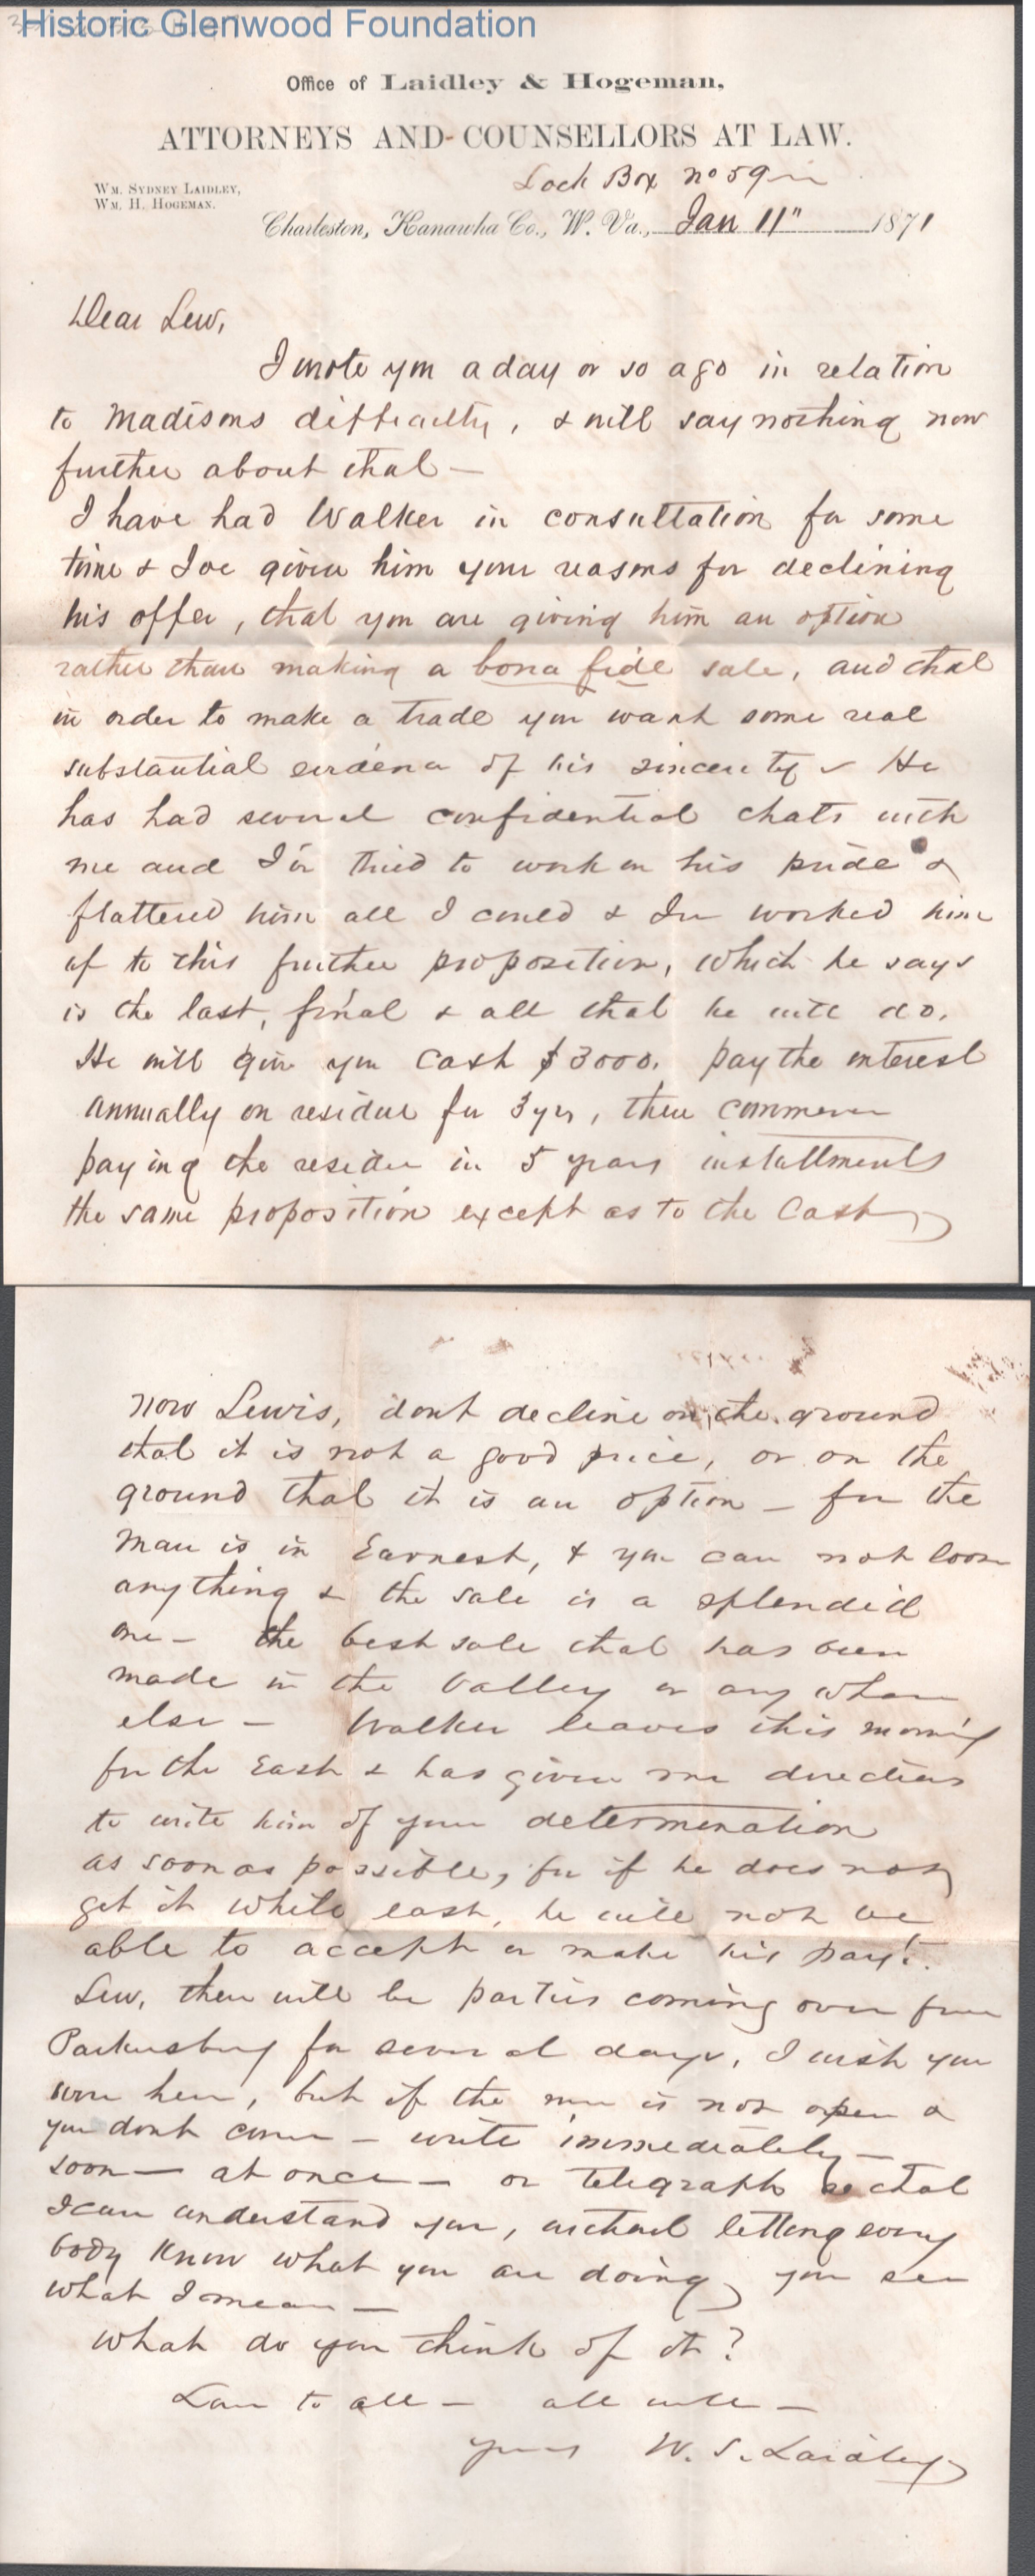 Historic Glenwood Foundation
Office of Laidley & Hogeman,
ATTORNEYS AND COUNSELLORS AT LAW.
Lock Box no 59
Wm. Sydney Laidley,
Wm. H. Hogeman.
Charleston, Kanawha Co., W. Va., Jan 11" 1871
Dear Lew,
I wrote you a day or so ago in relation
to Madisons difficulty, & will say nothing now
further about that —
I have had Walker in consultation for some
time & I've given him your reasons for declining
his offer, that you are giving him an option
rather than making a bona fide sale, and that
in order to make a trade you want some real
substantial evidence of his sincerity & He
has had several confidential chats with
me and I've tried to work on his pride &
flattered him all I could & I've worked him
up to this further proposition, which he says
is the last, final & all that he will do.
He will give you Cash $3000. pay the interest
annually on residue for 3 yrs, then commence
paying the residue in 5 years installments
the same proposition except as to the Cash
Now Lewis, dont decline on the ground
that it is not a good price, or on the
ground that it is an option — for the
man is in Earnest, & you can not loose
anything & the sale is a splendid
one — the best sale that has been
made in the Valley or any where
else — Walker leaves this morning
for the East & has given me directions
to write him of your determination
as soon as possible, for if he does not
get it while east, he will not be
able to accept or make his payt.
Lew, there will be parties coming over from
Parkersburg for several days, I wish you
were here, but if the river is not open &
you dont come — write immediately —
soon — at once — or telegraph so that
I can understand you, without letting every
body know what you are doing, you see
what I mean —
What do you think of it?
Love to all — all well —
yours W. S. Laidley